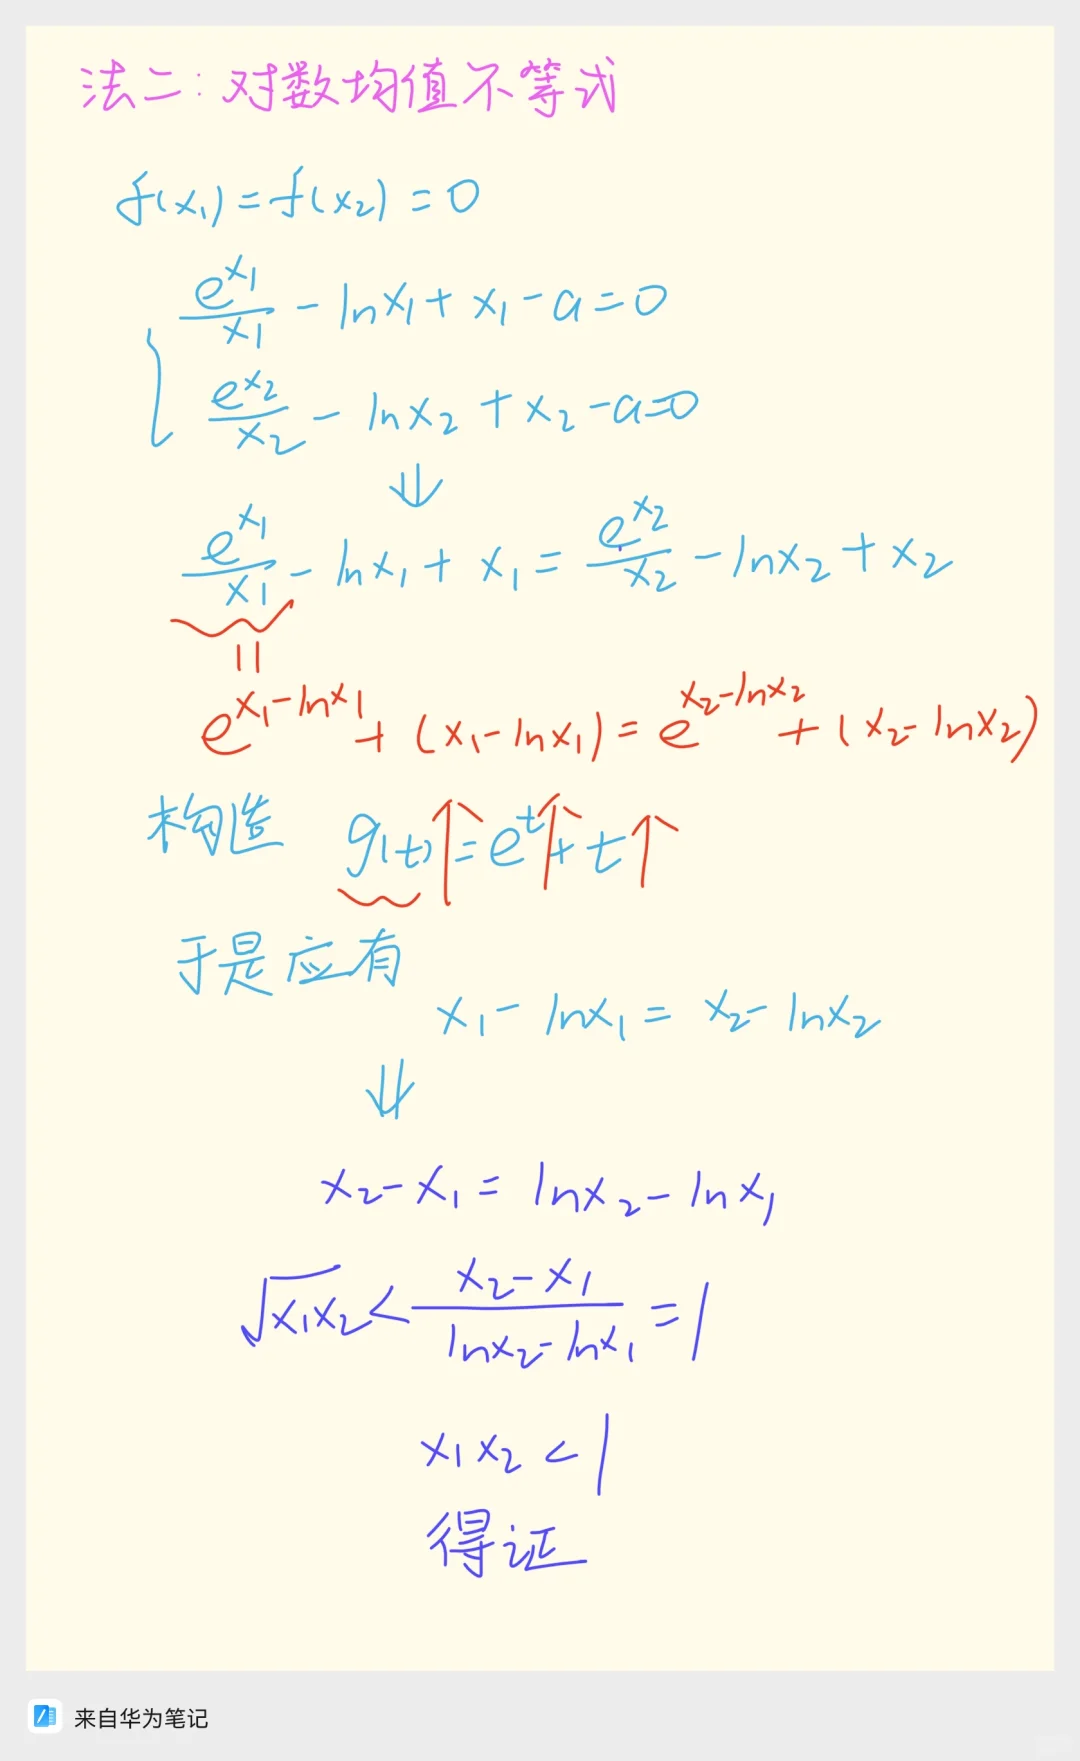 法二:对数均值不等式
f(x₁)=f(x₂)=0
e^x₁/x₁ - lnx₁ + x₁ - a = 0
e^x₂/x₂ - lnx₂ + x₂ - a = 0
⇓
e^x₁/x₁ - lnx₁ + x₁ = e^x₂/x₂ - lnx₂ + x₂
||
e^(x₁-lnx₁) + (x₁-lnx₁) = e^(x₂-lnx₂) + (x₂-lnx₂)
构造 g(t)↑ = e^t↑ + t↑
于是应有
x₁ - lnx₁ = x₂ - lnx₂
⇓
x₂ - x₁ = lnx₂ - lnx₁
√x₁x₂ < (x₂-x₁)/(lnx₂-lnx₁) = 1
x₁x₂ < 1
得证
来自华为笔记